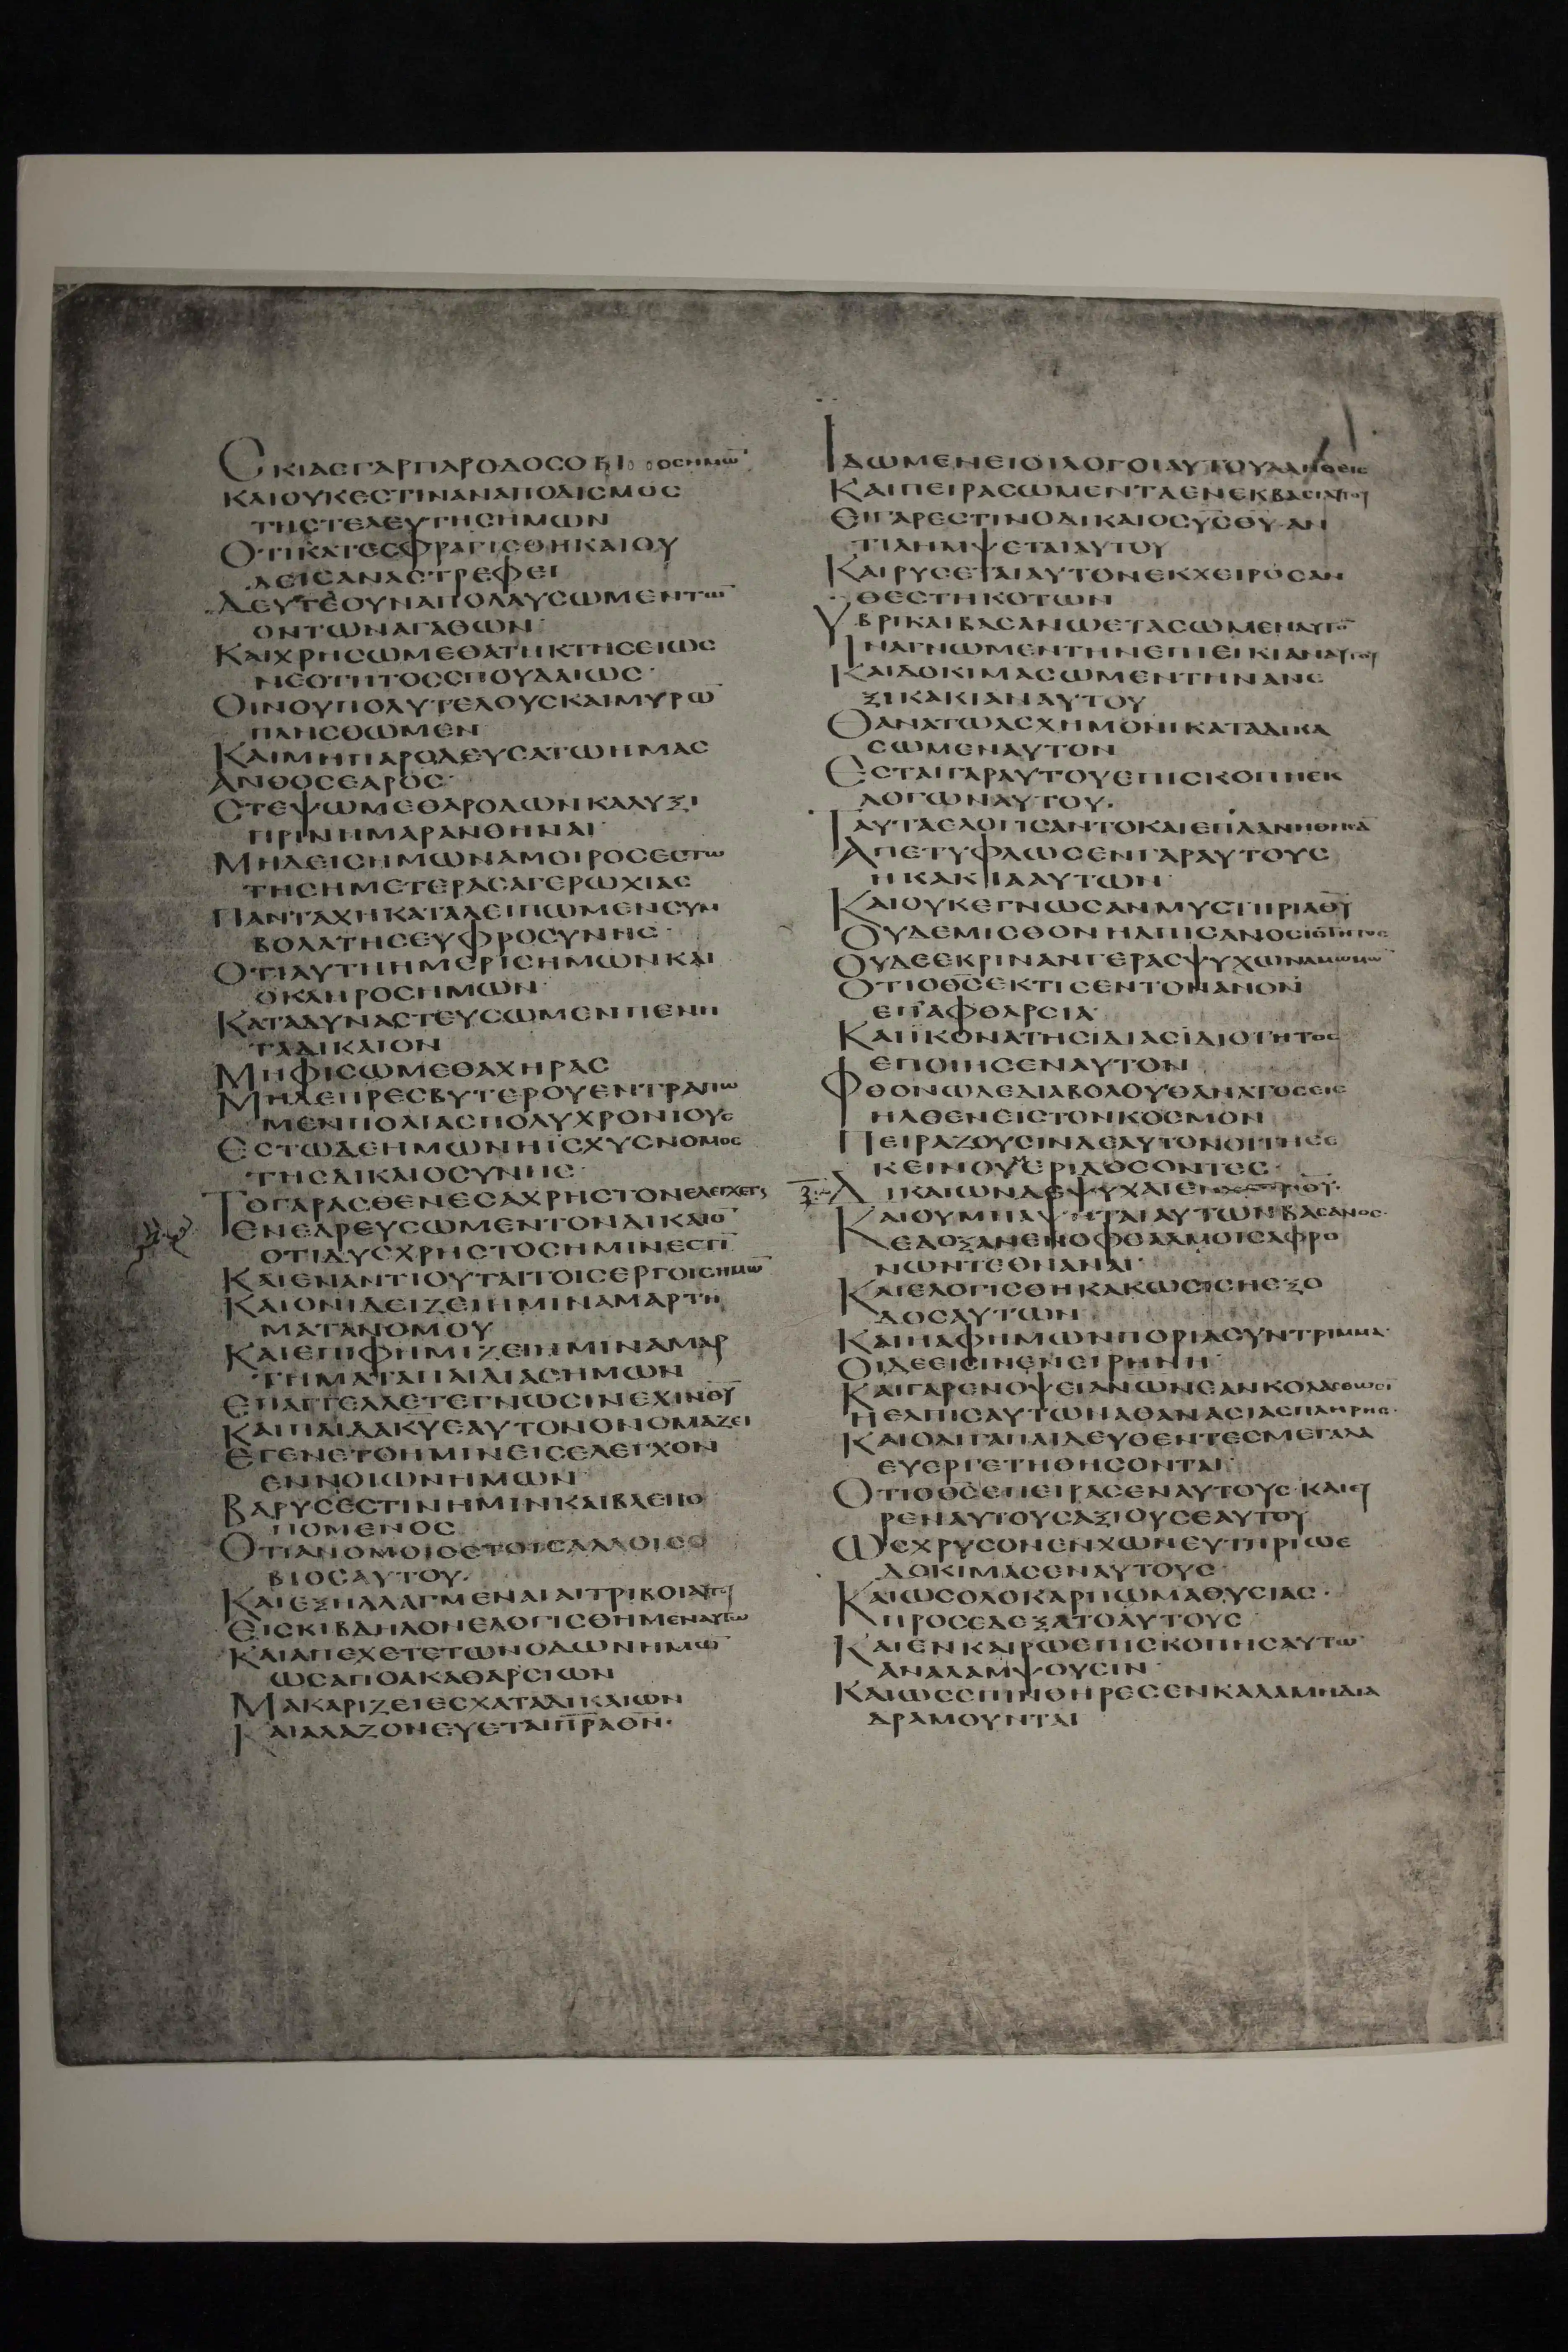 CΚΙΑCΓΑΡΠΑΡΟΔΟCΟΒΙΟCΗΜΩ̅
ΚΑΙΟΥΚΕCΤΙΝΑΝΑΠΟΔΙCΜΟC
ΤΗCΤΕΛΕΥΤΗCΗΜΩΝ
ΟΤΙΚΑΤΕCΦΡΑΓΙCΘΗΚΑΙΟΥ
ΔΕΙCΑΝΑCΤΡΕΦΕΙ
ΔΕΥΤΕΟΥΝΑΠΟΛΑΥCΩΜΕΝΤΩ̅
ΟΝΤΩΝΑΓΑΘΩΝ·
ΚΑΙΧΡΗCΩΜΕΘΑΤΗΚΤΗCΕΙΩC
ΝΕΟΤΗΤΟCCΠΟΥΔΑΙΩC·
ΟΙΝΟΥΠΟΛΥΤΕΛΟΥCΚΑΙΜΥΡΩ̅
ΠΛΗCΘΩΜΕΝ
ΚΑΙΜΗΠΑΡΟΔΕΥCΑΤΩΗΜΑC
ΑΝΘΟCΕΑΡΟC·
CΤΕΨΩΜΕΘΑΡΟΔΩΝΚΑΛΥΞΙ
ΠΡΙΝΗΜΑΡΑΝΘΗΝΑΙ·
ΜΗΔΕΙCΗΜΩΝΑΜΟΙΡΟCΕCΤΩ
ΤΗCΗΜΕΤΕΡΑCΑΓΕΡΩΧΙΑC
ΠΑΝΤΑΧΗΚΑΤΑΛΕΙΠΩΜΕΝCΥΜ
ΒΟΛΑΤΗCΕΥΦΡΟCΥΝΗC·
ΟΤΙΑΥΤΗΗΜΕΡΙCΗΜΩΝΚΑΙ
ΟΚΛΗΡΟCΗΜΩΝ·
ΚΑΤΑΔΥΝΑCΤΕΥCΩΜΕΝΠΕΝΗ
ΤΑΔΙΚΑΙΟΝ
ΜΗΦΙCΩΜΕΘΑΧΗΡΑC
ΜΗΔΕΠΡΕCΒΥΤΕΡΟΥΕΝΤΡΑΠΩ
ΜΕΝΠΟΛΙΑCΠΟΛΥΧΡΟΝΙΟΥC
ΕCΤΩΔΕΗΜΩΝΗΙCΧΥCΝΟΜΟC
ΤΗCΔΙΚΑΙΟCΥΝΗC·
ΤΟΓΑΡΑCΘΕΝΕCΑΧΡΗCΤΟΝΕΛΕΓΧΕΤΑΙ
ΕΝΕΔΡΕΥCΩΜΕΝΤΟΝΔΙΚΑΙΟ̅
ΟΤΙΔΥCΧΡΗCΤΟCΗΜΙΝΕCΤΙ̅
ΚΑΙΕΝΑΝΤΙΟΥΤΑΙΤΟΙCΕΡΓΟΙCΗΜΩ̅
ΚΑΙΟΝΙΔΕΙΖΕΙΗΜΙΝΑΜΑΡΤΗ
ΜΑΤΑΝΟΜΟΥ
ΚΑΙΕΠΙΦΗΜΙΖΕΙΗΜΙΝΑΜΑΡ
ΤΗΜΑΤΑΠΑΙΔΙΑCΗΜΩΝ
ΕΠΑΓΓΕΛΛΕΤΕΓΝΩCΙΝΕΧΙΝΘ̅Υ̅
ΚΑΙΠΑΙΔΑΚ̅Υ̅ΕΑΥΤΟΝΟΝΟΜΑΖΕΙ
ΕΓΕΝΕΤΟΗΜΙΝΕΙCΕΛΕΓΧΟΝ
ΕΝΝΟΙΩΝΗΜΩΝ·
ΒΑΡΥCΕCΤΙΝΗΜΙΝΚΑΙΒΛΕΠΟ
ΠΟΜΕΝΟC
ΟΤΙΑΝΟΜΟΙΟCΤΟΙCΑΛΛΟΙCΟ
ΒΙΟCΑΥΤΟΥ.
ΚΑΙΕΞΗΛΛΑΓΜΕΝΑΙΑΙΤΡΙΒΟΙΑΥΤΟΥ
ΕΙCΚΙΒΔΗΛΟΝΕΛΟΓΙCΘΗΜΕΝΑΥΤΩ
ΚΑΙΑΠΕΧΕΤΕΤΩΝΟΔΩΝΗΜΩ̅
ΩCΑΠΟΑΚΑΘΑΡCΙΩΝ
ΜΑΚΑΡΙΖΕΙΕCΧΑΤΑΔΙΚΑΙΩΝ
ΚΑΙΑΛΑΖΟΝΕΥΕΤΑΙΠ̅Ρ̅ΑΘ̅Ν̅·
ΙΔΩΜΕΝΕΙΟΙΛΟΓΟΙΑΥΤΟΥΑΛΗΘΕΙC
ΚΑΙΠΕΙΡΑCΩΜΕΝΤΑΕΝΕΚΒΑCΙΑΥΤΟΥ
ΕΙΓΑΡΕCΤΙΝΟΔΙΚΑΙΟCΥ̅C̅Θ̅Υ̅·ΑΝ
ΤΙΛΗΜΨΕΤΑΙΑΥΤΟΥ
ΚΑΙΡΥCΕΤΑΙΑΥΤΟΝΕΚΧΕΙΡΟCΑΝ
ΘΕCΤΗΚΟΤΩΝ
ΥΒΡΙΚΑΙΒΑCΑΝΩΕΤΑCΩΜΕΝΑΥΤΟ̅
ΙΝΑΓΝΩΜΕΝΤΗΝΕΠΙΕΙΚΙΑΝΑΥΤΟΥ
ΚΑΙΔΟΚΙΜΑCΩΜΕΝΤΗΝΑΝΕ
ΞΙΚΑΚΙΑΝΑΥΤΟΥ
ΘΑΝΑΤΩΑCΧΗΜΟΝΙΚΑΤΑΔΙΚΑ
CΩΜΕΝΑΥΤΟΝ
ΕCΤΑΙΓΑΡΑΥΤΟΥΕΠΙCΚΟΠΗΕΚ
ΛΟΓΩΝΑΥΤΟΥ.
ΤΑΥΤΑΕΛΟΓΙCΑΝΤΟΚΑΙΕΠΛΑΝΗΘΗCΑ̅
ΑΠΕΤΥΦΛΩCΕΝΓΑΡΑΥΤΟΥC
ΗΚΑΚΙΑΑΥΤΩΝ·
ΚΑΙΟΥΚΕΓΝΩCΑΝΜΥCΤΗΡΙΑΘ̅Υ̅
ΟΥΔΕΜΙCΘΟΝΗΛΠΙCΑΝΟCΙΟΤΗΤΟC
ΟΥΔΕΕΚΡΙΝΑΝΓΕΡΑCΨΥΧΩΝΑΜΩΜΩ̅
ΟΤΙΟΘ̅C̅ΕΚΤΙCΕΝΤΟΝΑΝΟΝ
ΕΠΑΦΘΑΡCΙΑ·
ΚΑΙΙΚΟΝΑΤΗCΙΔΙΑCΙΔΙΟΤΗΤΟC
ΕΠΟΙΗCΕΝΑΥΤΟΝ
ΦΘΟΝΩΔΕΔΙΑΒΟΛΟΥΘΑΝΑΤΟCΕΙC
ΗΛΘΕΝΕΙCΤΟΝΚΟCΜΟΝ
ΠΕΙΡΑΖΟΥCΙΝΔΕΑΥΤΟΝΟΙΤΗCΕ
ΚΕΙΝΟΥΜΕΡΙΔΟCΟΝΤΕC·
ΔΙΚΑΙΩΝΔΕΨΥΧΑΙΕΝΧΕΙΡΙΘ̅Υ̅·
ΚΑΙΟΥΜΗΑΨΗΤΑΙΑΥΤΩΝΒΑCΑΝΟC·
ΕΔΟΞΑΝΕΝΟΦΘΑΛΜΟΙCΑΦΡΟ
ΝΩΝΤΕΘΝΑΝΑΙ·
ΚΑΙΕΛΟΓΙCΘΗΚΑΚΩCΙCΗΕΞΟ
ΔΟCΑΥΤΩΝ
ΚΑΙΗΑΦΗΜΩΝΠΟΡΙΑCΥΝΤΡΙΜΜΑ·
ΟΙΔΕΕΙCΙΝΕΝΕΙΡΗΝΗ·
ΚΑΙΓΑΡΕΝΟΨΕΙΑΝ̅Ω̅Ν̅ΕΑΝΚΟΛΑCΘΩCΙ̅
ΗΕΛΠΙCΑΥΤΩΝΑΘΑΝΑCΙΑCΠΛΗΡΗC·
ΚΑΙΟΛΙΓΑΠΑΙΔΕΥΘΕΝΤΕCΜΕΓΑΛΑ
ΕΥΕΡΓΕΤΗΘΗCΟΝΤΑΙ
ΟΤΙΟΘ̅C̅ΕΠΕΙΡΑCΕΝΑΥΤΟΥC·ΚΑΙΕΥ
ΡΕΝΑΥΤΟΥCΑΞΙΟΥCΕΑΥΤΟΥ
ΩCΧΡΥCΟΝΕΝΧΩΝΕΥΤΗΡΙΩΕ
ΔΟΚΙΜΑCΕΝΑΥΤΟΥC·
ΚΑΙΩCΟΛΟΚΑΡΠΩΜΑΘΥCΙΑC·
ΠΡΟCΕΔΕΞΑΤΟΑΥΤΟΥC·
ΚΑΙΕΝΚΑΙΡΩΕΠΙCΚΟΠΗCΑΥΤΩ̅
ΑΝΑΛΑΜΨΟΥCΙΝ·
ΚΑΙΩCCΠΙΝΘΗΡΕCΕΝΚΑΛΑΜΗΔΙΑ
ΔΡΑΜΟΥΝΤΑΙ